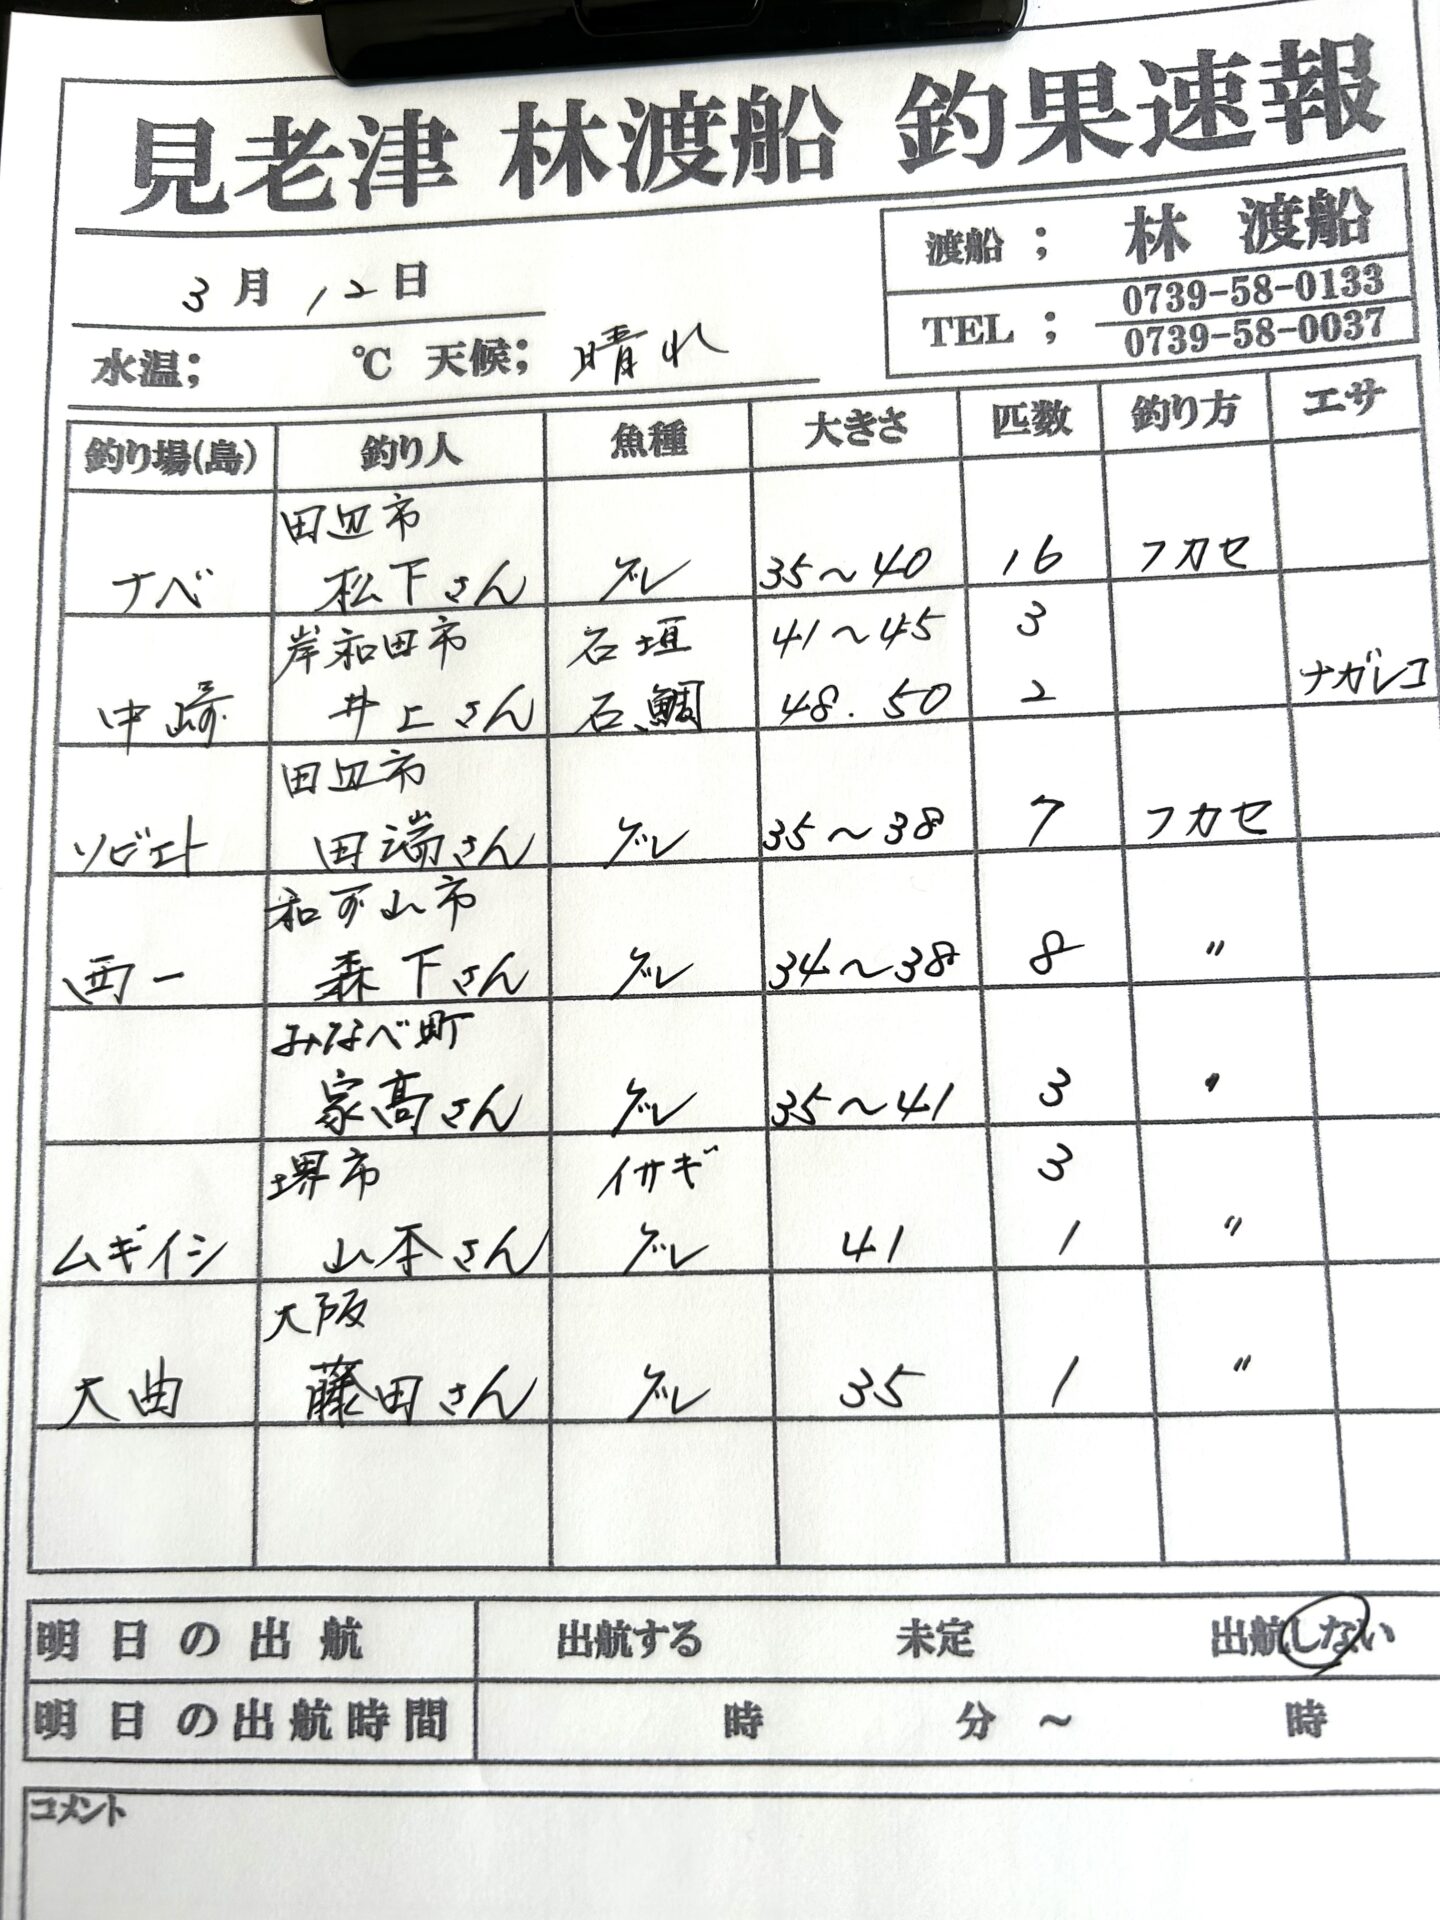 見老津 林渡船 釣果速報
3月12日
渡船； 林 渡船
TEL； 0739-58-0133
0739-58-0037
水温； ℃ 天候； 晴れ
釣り場(島) 釣り人 魚種 大きさ 匹数 釣り方 エサ
田辺市
ナベ 松下さん グレ 35～40 16 フカセ
岸和田市 石垣 41～45 3
中崎 井上さん 石鯛 48.50 2 ナガレコ
田辺市
ソビエト 田端さん グレ 35～38 7 フカセ
和可山市
西一 森下さん グレ 34～38 8 〃
みなべ町
家高さん グレ 35～41 3 〃
堺市 イサギ 3
ムギイシ 山本さん グレ 41 1 〃
大阪
大曲 藤田さん グレ 35 1 〃
明日の出航 出航する 未定 出航しない
明日の出航時間 時 分 ～ 時
コメント